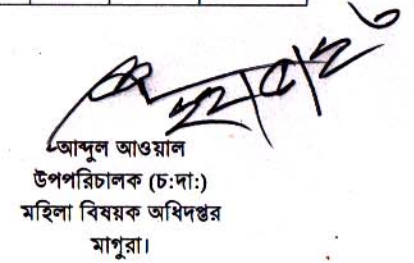 আব্দুল আওয়াল
উপপরিচালক (চ:দা:)
মহিলা বিষয়ক অধিদপ্তর
মাগুরা।